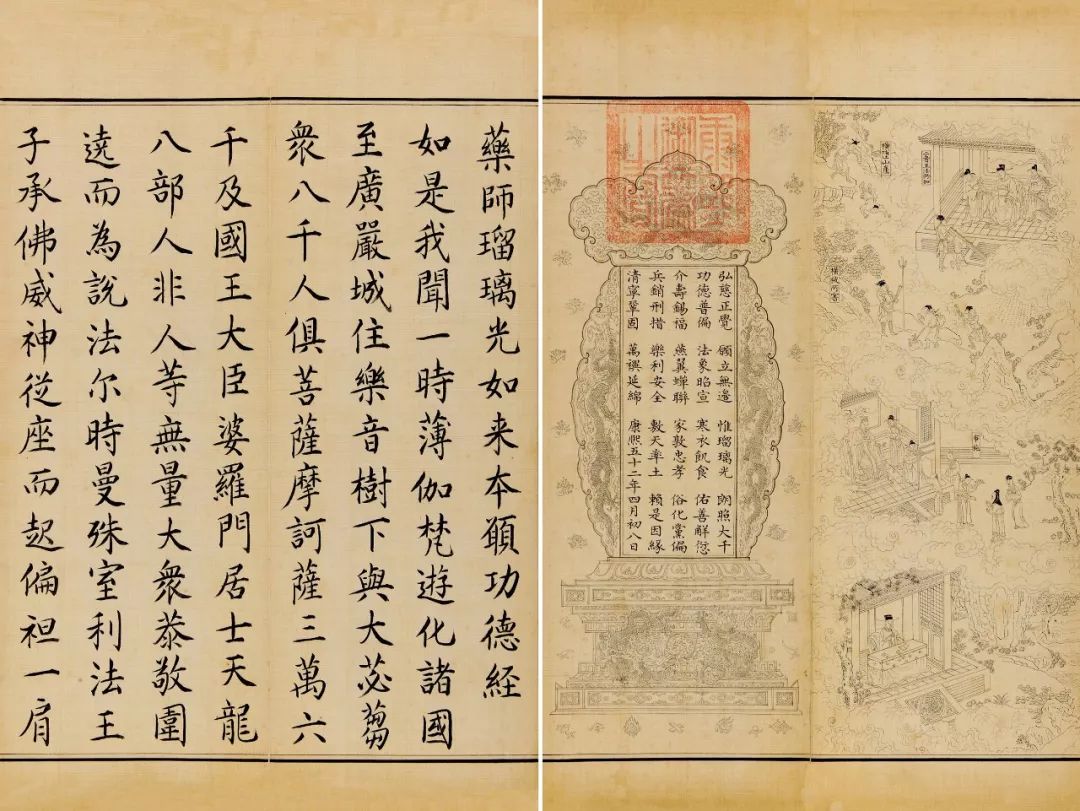 藥師瑠璃光如来本願功德経
如是我聞一時薄伽梵遊化諸國
至廣嚴城住樂音樹下與大苾芻
衆八千人俱菩薩摩訶薩三萬六
千及國王大臣婆羅門居士天龍
八部人非人等無量大衆恭敬圍
遶而為說法尔時曼殊室利法王
子承佛威神從座而起偏袒一肩
弘慈正覺 願立無邊 惟瑠璃光 朗照大千
功德普徧 法象昭宣 寒衣飢食 佑善解愆
介壽錫福 燕翼蟬聯 家敦忠孝 俗化黨偏
兵銷刑措 樂利安全 敷天率土 賴是因緣
清寧鞏固 萬禩延綿 康熙五十二年四月初八日
橫墮山崖
布施